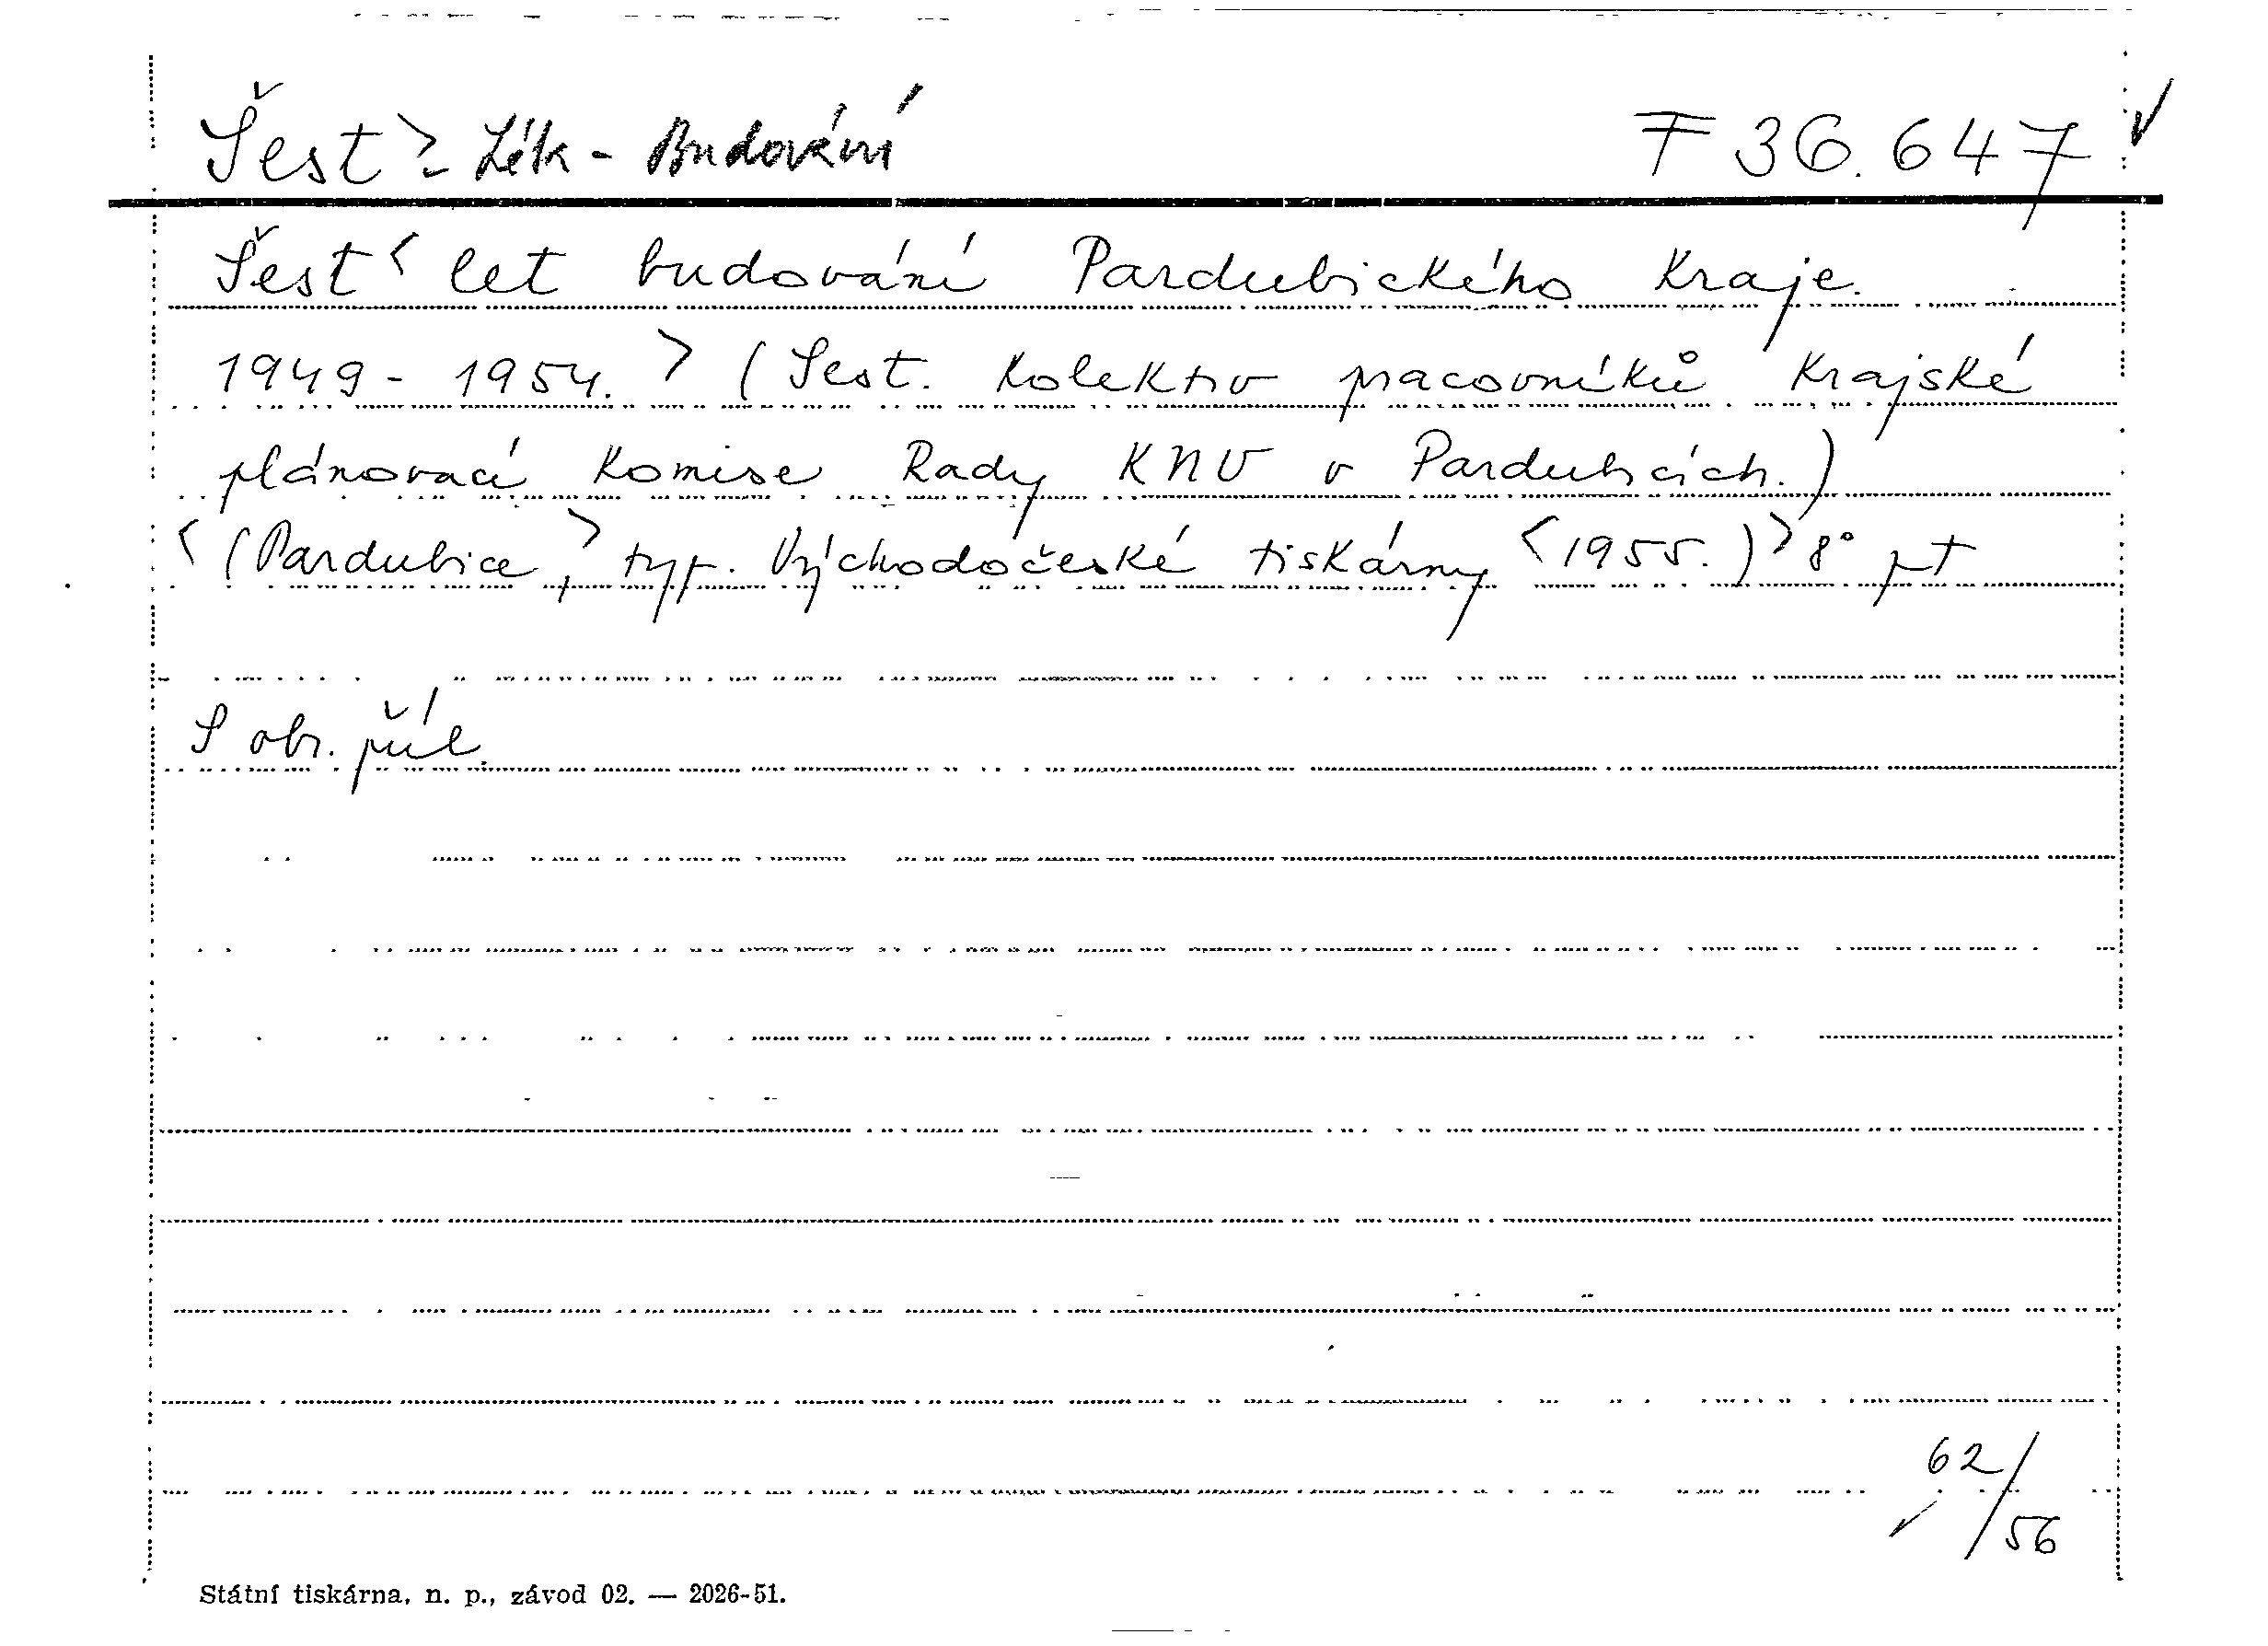 Šest > - Budování F 36.647 ✓
Šest < let budování Pardubického Kraje.
1949 - 1954. > (Sest. Kolektiv pracovníků Krajské
plánovací Komise Rady KNV v Pardubicích.)
< (Pardubice, > typ. Východočeské tiskárny < 1955.) > 8° pt
S obr. příl.
62/56
Státní tiskárna, n. p., závod 02. — 2026-51.